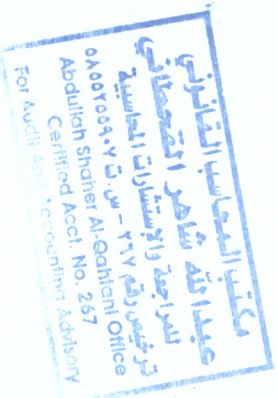 مكتب المحاسب القانوني
عبدالله شاهر القحطاني
للمراجعة والاستشارات المحاسبية
ترخيص رقم ٢٦٧ - س.ت ٥٨٥٥٣٥٥٩٠٧
Abdullah Shaher Al-Qahtani Office
Certified Acct. No. 267
For Audit And Accounting Advisory